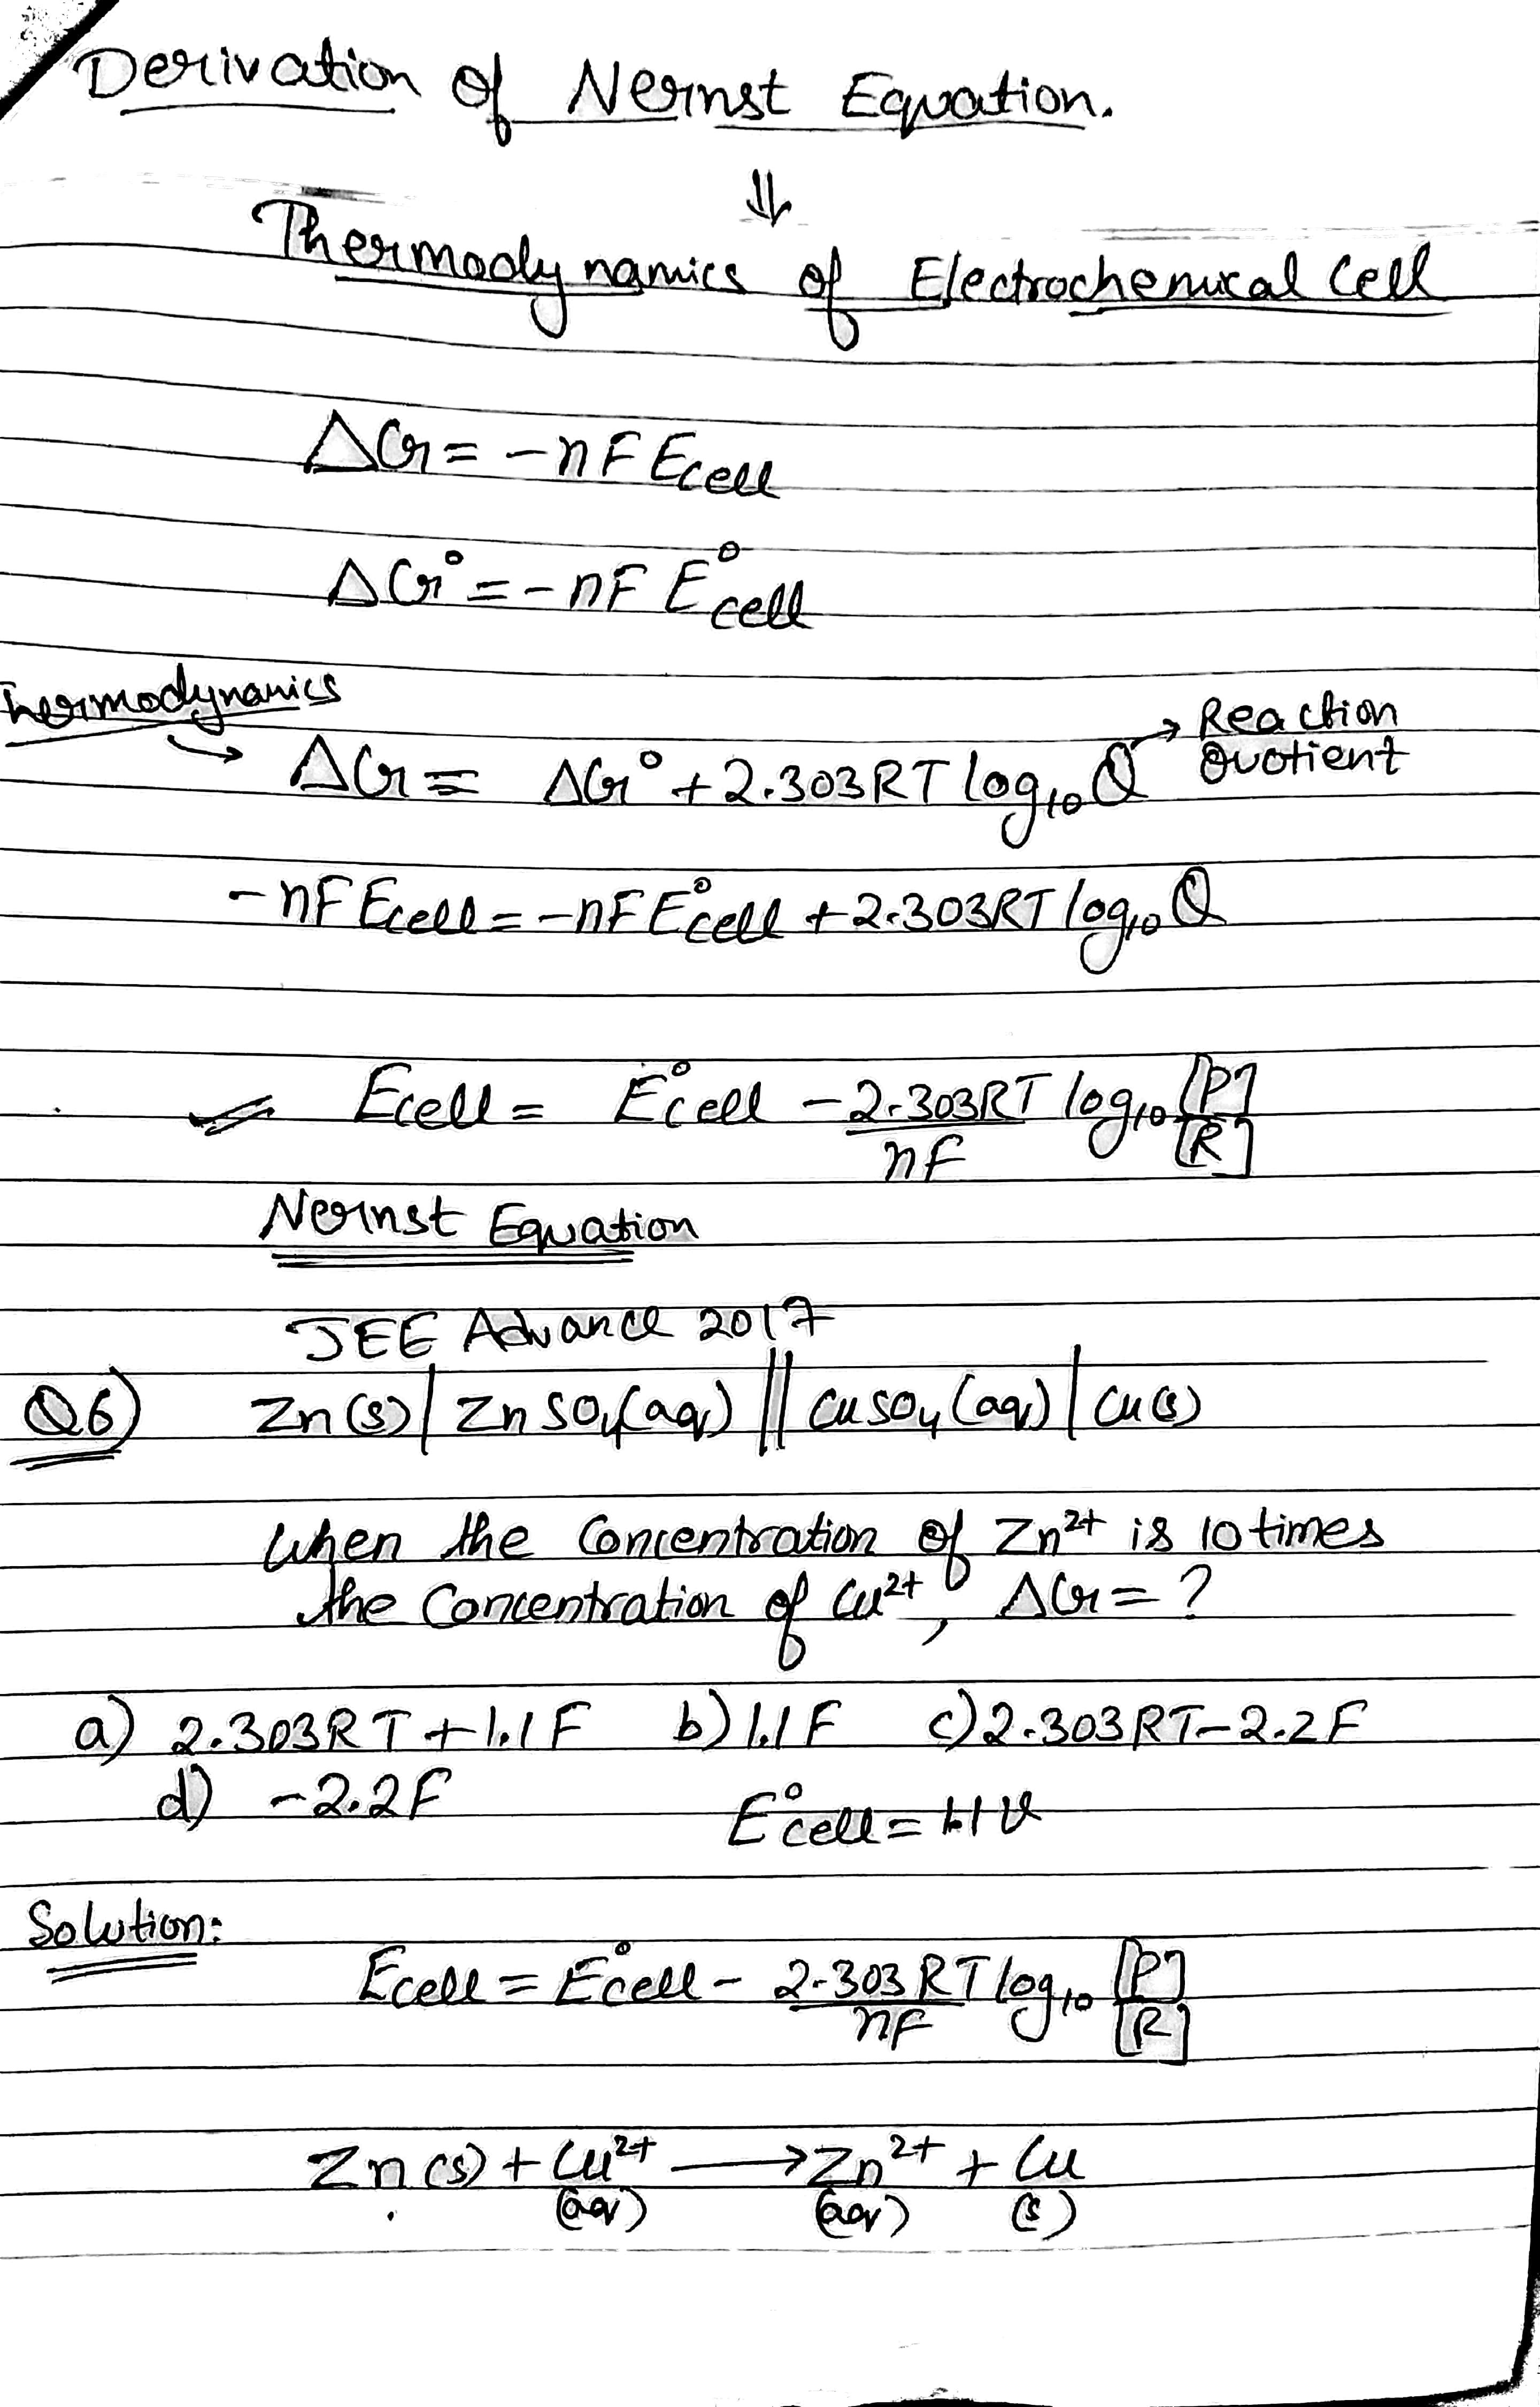 Derivation of Nernst Equation.
⇓
Thermodynamics of Electrochemical Cell
ΔG = -nFEcell
ΔG° = -nFE°cell
Thermodynamics
→ ΔG = ΔG° + 2.303RT log₁₀Q → Reaction Quotient
-nFEcell = -nFE°cell + 2.303RT log₁₀Q
Ecell = E°cell - 2.303RT/nF log₁₀ [P]/[R]
Nernst Equation
JEE Advance 2017
Q6) Zn(s) | ZnSO₄(aq) || CuSO₄(aq) | Cu(s)
When the Concentration of Zn²⁺ is 10 times
the Concentration of Cu²⁺, ΔG = ?
a) 2.303RT + 1.1F b) 1.1F c) 2.303RT - 2.2F
d) -2.2F E°cell = 1.1V
Solution:
Ecell = E°cell - 2.303RT/nF log₁₀ [P]/[R]
Zn(s) + Cu²⁺(aq) → Zn²⁺(aq) + Cu(s)